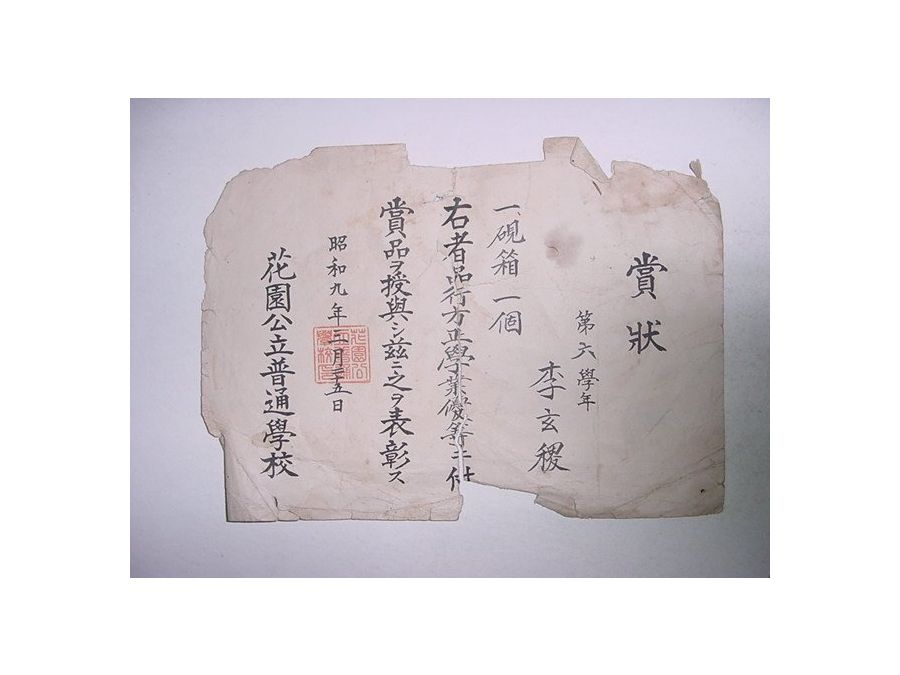 賞狀
第六學年
李玄稷
一、硯箱 一個
右者品行方正學業優等ニ付
賞品ヲ授與シ玆ニ之ヲ表彰ス
昭和九年三月二十五日
花園公立普通學校